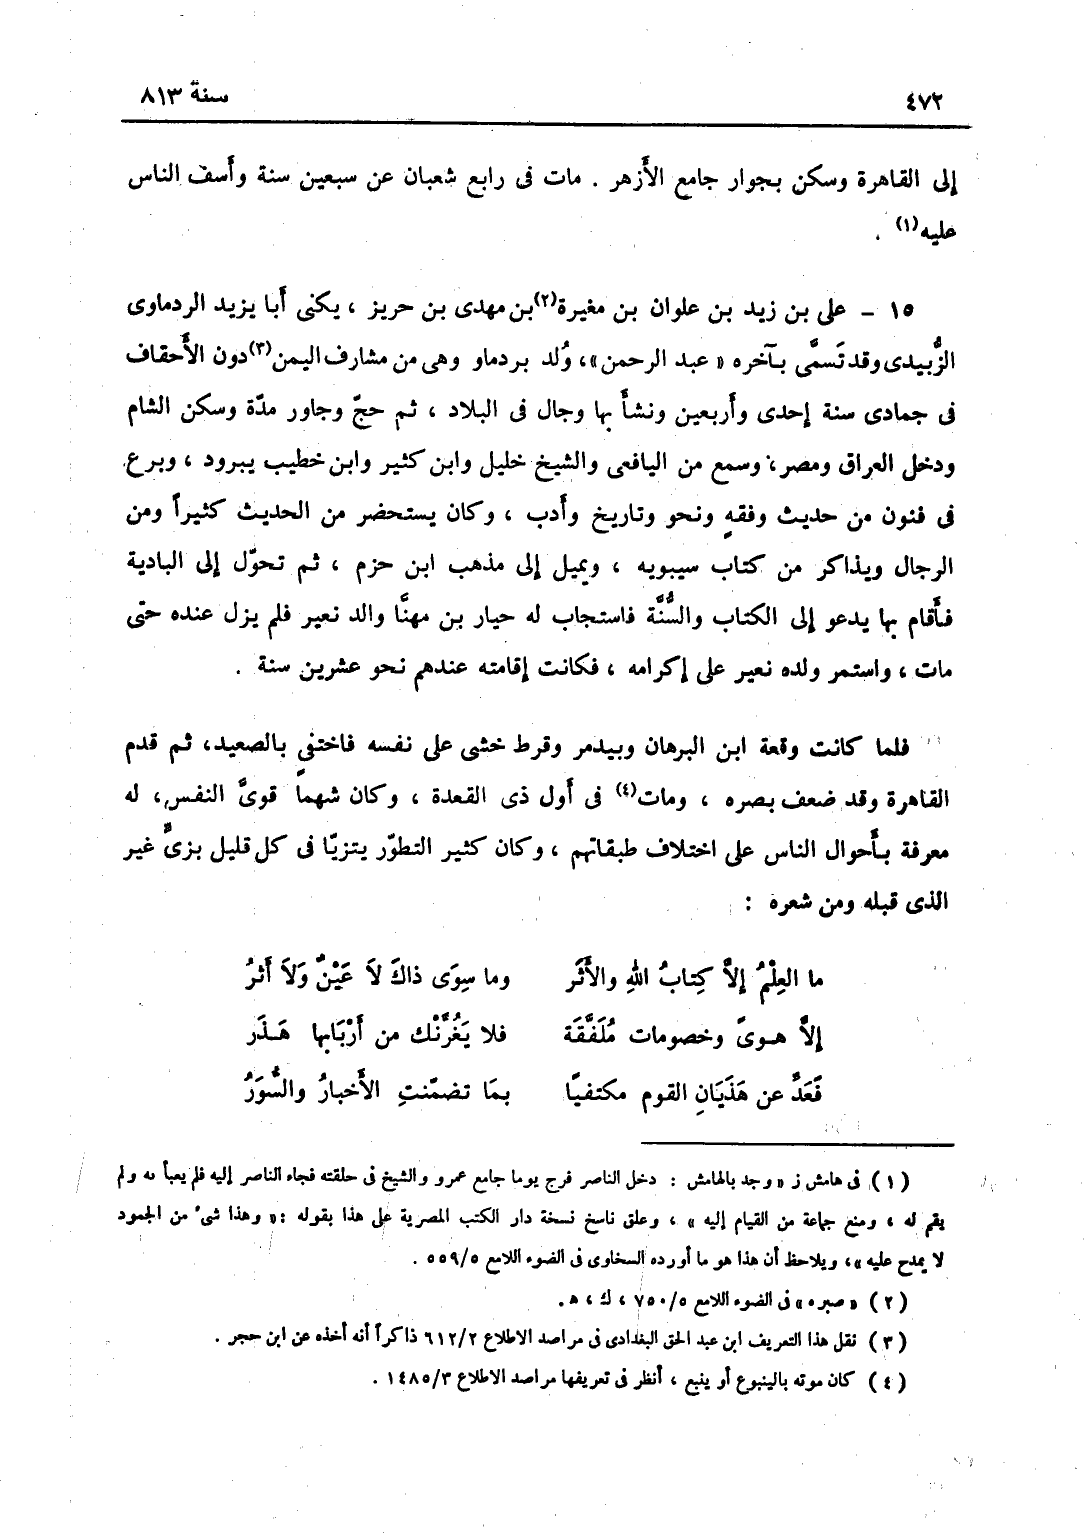 ٤٧٢ سنة ٨١٣
إلى القاهرة وسكن بجوار جامع الأزهر . مات فى رابع شعبان عن سبعين سنة وأسف الناس
عليه(١) .
١٥ – على بن زيد بن علوان بن مغيرة(٢)بن مهدى بن حريز ، يكنى أبا يزيد الردماوى
الزُّبيدى وقد تَسمَّى بآخره « عبد الرحمن »، وُلد بردماو وهى من مشارف اليمن(٣)دون الأحقاف
فى جمادى سنة إحدى وأربعين ونشأ بها وجال فى البلاد ، ثم حجّ وجاور مدّة وسكن الشام
ودخل العراق ومصر، وسمع من اليافعى والشيخ خليل وابن كثير وابن خطيب يبرود ، وبرع
فى فنون من حديث وفقهٍ ونحو وتاريخ وأدب ، وكان يستحضر من الحديث كثيراً ومن
الرجال ويذاكر من كتاب سيبويه ، ويميل إلى مذهب ابن حزم ، ثم تحوّل إلى البادية
فأقام بها يدعو إلى الكتاب والسُّنَّة فاستجاب له حيار بن مهنَّا والد نعير فلم يزل عنده حتى
مات ، واستمر ولده نعير على إكرامه ، فكانت إقامته عندهم نحو عشرين سنة .
فلما كانت وقعة ابن البرهان وبيدمر وقرط خشى على نفسه فاختفى بالصعيد، ثم قدم
القاهرة وقد ضعف بصره ، ومات(٤) فى أول ذى القعدة ، وكان شهماً قوىَّ النفس، له
معرفة بأحوال الناس على اختلاف طبقاتهم ، وكان كثير التطوّر يتزيّا فى كل قليل بزىٍّ غير
الذى قبله ومن شعره :
ما العِلْمُ إلاَّ كِتابُ اللهِ والأَثَر وما سِوَى ذاكَ لاَ عَيْنٌ وَلاَ أَثرُ
إلاَّ هوىً وخصومات مُلَفَّقَة فلا يَغُرَّنْك من أَرْبَابها هَذَر
فَعَدِّ عن هَذَيَانِ القوم مكتفيًا بمَا تضمّنتِ الأَخبارُ والسُّوَرُ
(١) فى هامش ز « وجد بالهامش : دخل الناصر فرج يوما جامع عمرو والشيخ فى حلقته فجاء الناصر إليه فلم يعبأ به ولم
يقم له ، ومنع جماعة من القيام إليه » ، وعلق ناسخ نسخة دار الكتب المصرية على هذا بقوله :« وهذا شىء من الجمود
لا يمدح عليه »، ويلاحظ أن هذا هو ما أورده السخاوى فى الضوء اللامع ٥/٥٥٩ .
(٢) « صبره » فى الضوء اللامع ٥/٧٥٠ ، ك ، ه .
(٣) نقل هذا التعريف ابن عبد الحق البغدادى فى مراصد الاطلاع ٢/٦١٢ ذاكراً أنه أخذه عن ابن حجر .
(٤) كان موته بالينبوع أو ينبع ، أنظر فى تعريفها مراصد الاطلاع ٣/١٤٨٥ .